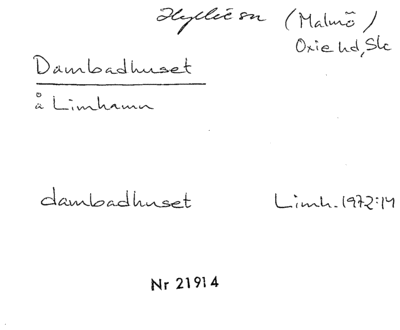 Hyllie sn (Malmö)
Oxie hd, Sk
Dambadhuset
å Limhamn
dambadhuset Limh. 1972:14
Nr 21914